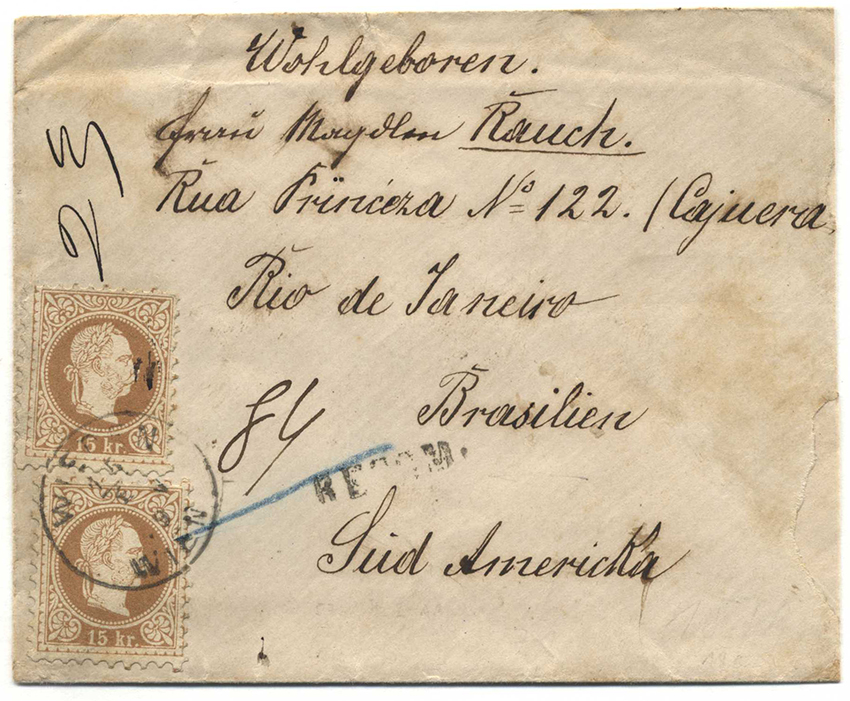 Wohlgeboren.
Frau Magdlen Rauch.
23
Rua Princeza No 122. (Cajuera
Rio de Janeiro
Brasilien
84
RECOM.
Süd Americka
15 kr.
WIEN
WIEN
15 kr.